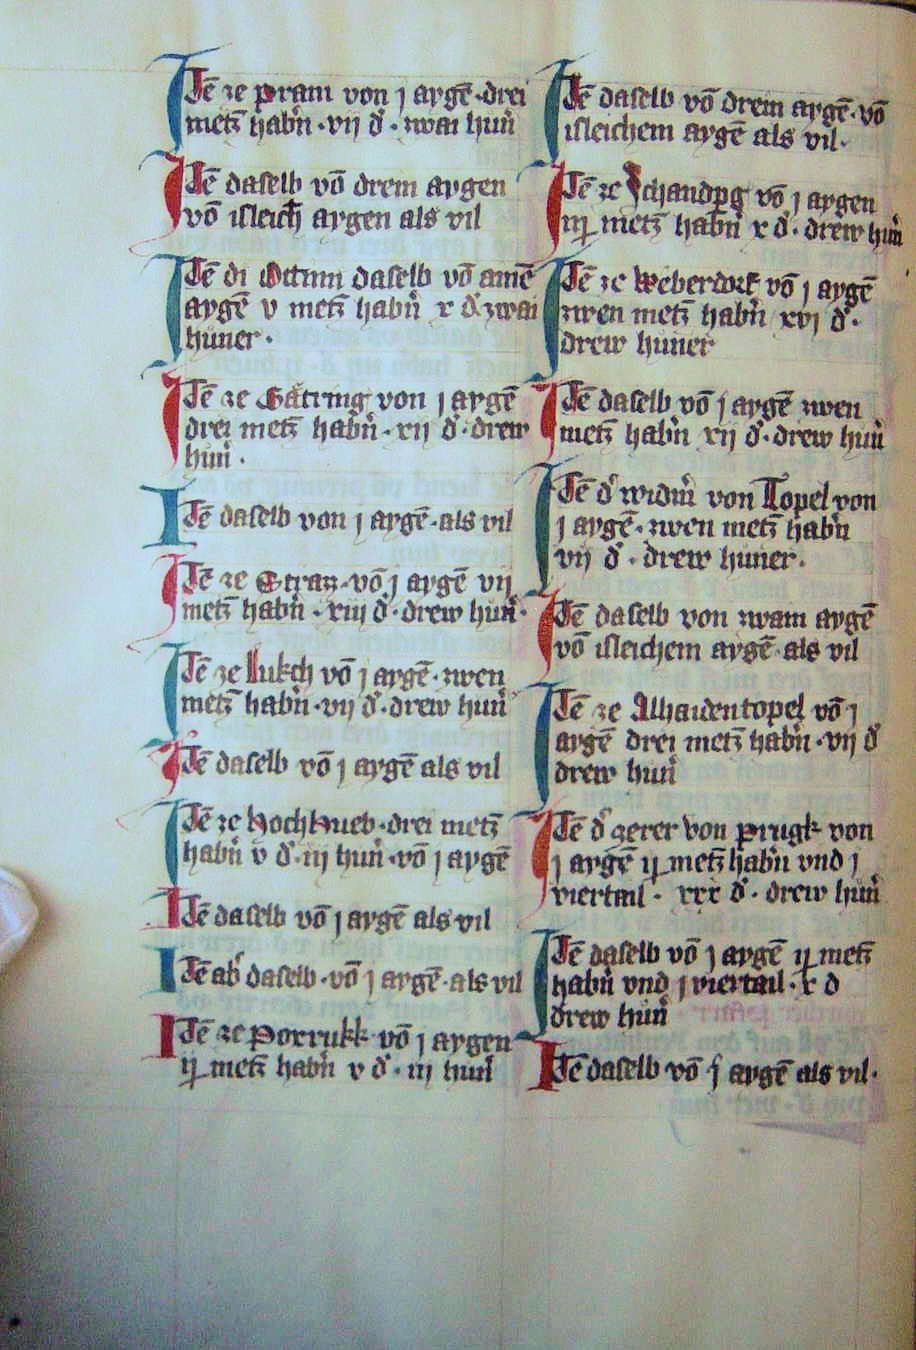 Itē ze pram von j aygē · drei
metz̄ habn̄ · vij d̕ · zwai hun̄
Itē daselb vō drem aygen
vō isleich̄ aygen als vil
Itē di daselb vō ainē
aygē v metz̄ habn̄ x d̕ · zwai
huner ·
Itē ze Gātring von j aygē
drei metz̄ habn̄ · xij d̕ · drew
hun̄ ·
Itē daselb von j aygē · als vil
Itē ze Straz · vō j aygē vij
metz̄ habn̄ · xiij d̕ · drew hun̄ ·
Itē ze lukch vō j aygē · zwen
metz̄ habn̄ · vij d̕ · drew hun̄
Itē daselb vō j aygē als vil
Itē ze hochhueb · drei metz̄
habn̄ v d̕ · iij hun̄ · vō j aygē
Itē daselb vō j aygē als vil
Itē ab̕ daselb · vō j aygē · als vil
Itē ze Porrukk vō j aygen
ij metz̄ habn̄ v d̕ · iij hun̄
Itē daselb vō drem aygē · vō
isleichem aygē als vil ·
Itē ze Schandpḡ vō j aygen
metz̄ habn̄ x d̕ · drew hun̄
Itē ze Weberdorf vō j aygē
zwen metz̄ habn̄ xvj d̕ ·
drew huner
Itē daselb vō j aygē zwen
metz̄ habn̄ xij d̕ · drew hun̄
Itē d̕ widm̄ von Topel von
j aygē · zwen metz̄ habn̄
vij d̕ · drew huner ·
Itē daselb von zwain aygē
vō isleichem aygē als vil
Itē ze Alhaidentopel vō j
aygē drei metz̄ habn̄ · vij d̕
drew hun̄
Itē d̕ zerer von prugk von
j aygē ij metz̄ habn̄ vnd j
viertail · xxx d̕ · drew hun̄
Itē daselb vō j aygē ij metz̄
habn̄ vnd j viertail · x d
drew hun̄
Itē daselb vō j aygē als vil ·